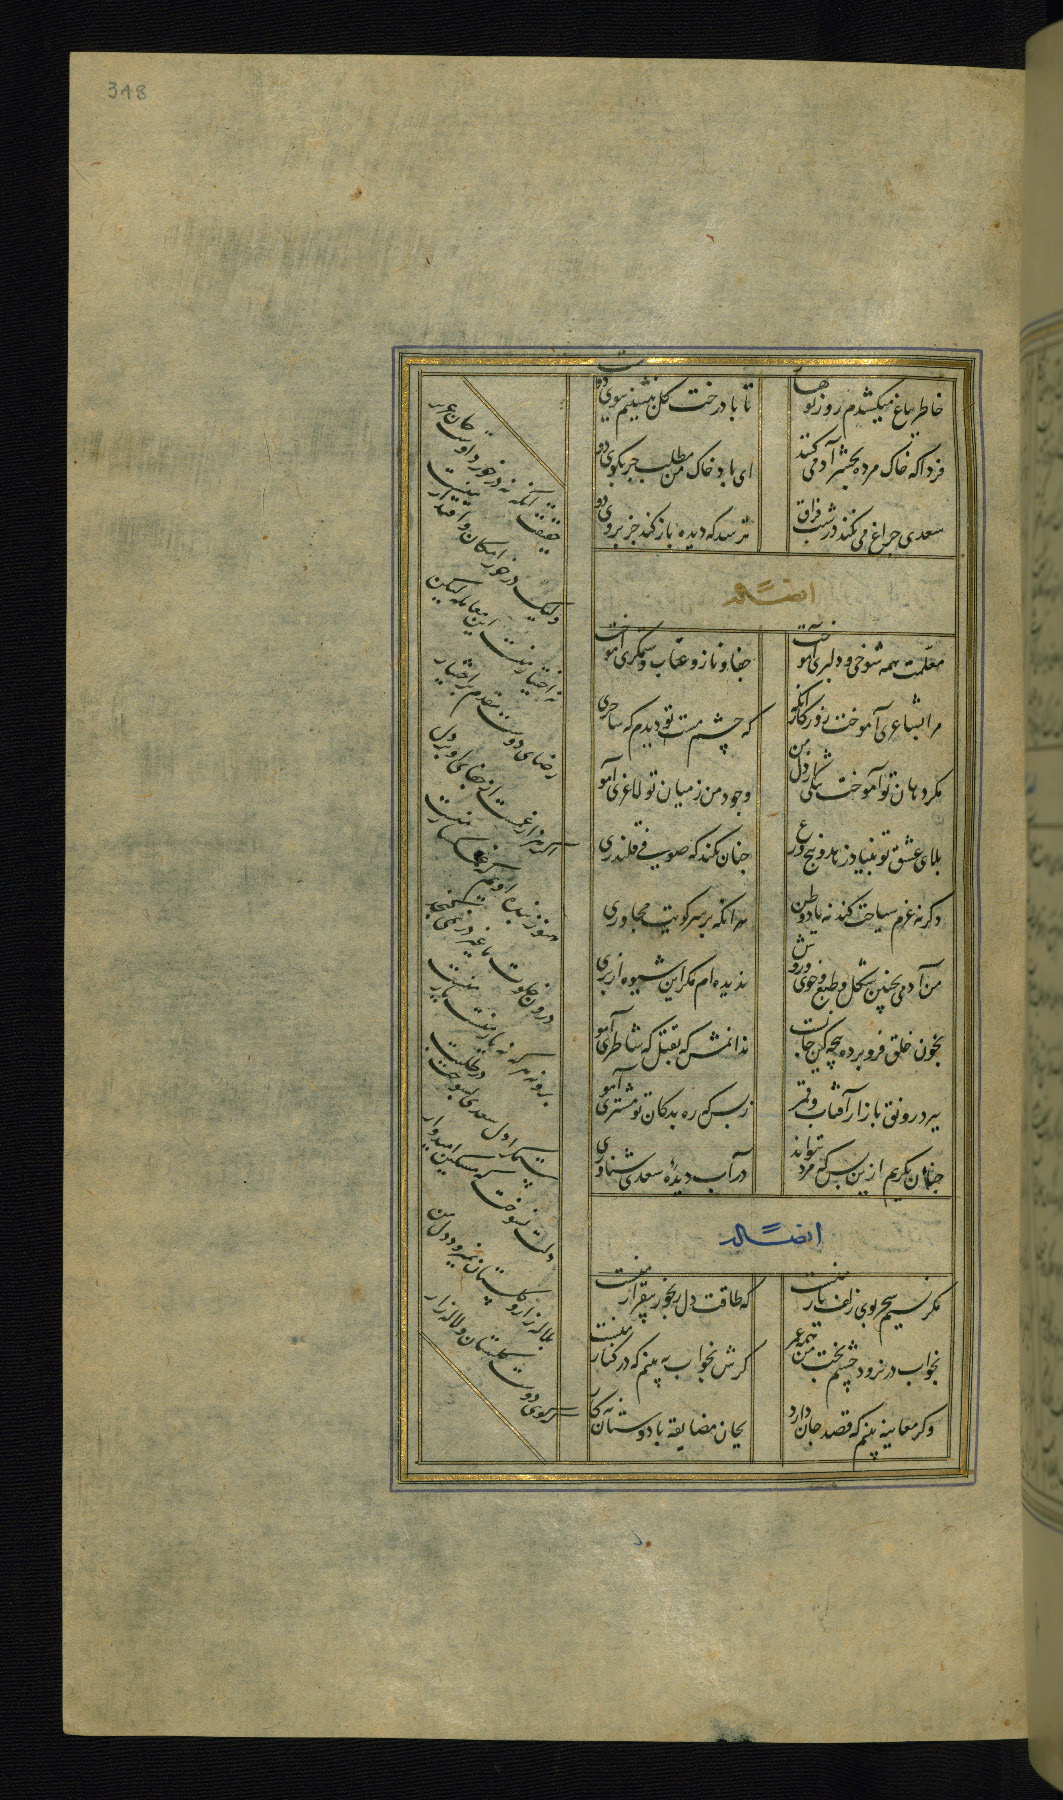 348
خاطر بباغ میکشدم روز نوبهار
تا با درخت گل بنشینم ببوی دوست
فردا که خاک مرده بحشر آدمی کنند
ای باد خاک من مطلب جز بکوی دوست
سعدی چراغ می نکند در شب فراق
ترسد که دیده باز کند جز بروی دوست
ایضاً له
معلمت همه شوخی و دلبری آموخت
جفا و ناز و عتاب و ستمگری آموخت
مرا بشاعری آموخت روزگار آنگه
که چشم مست تو دیدم که ساحری
مگر دهان تو آموخت تنگی از دل من
وجود من ز میان تو لاغری آمو
بلای عشق تو بنیاد زهد و بیخ ورع
چنان بکند که صوفی قلندری
دگر نه عزم سیاحت کند نه یاد وطن
هر آنکه بر سر کویت مجاوری
من آدمی بچنین شکل و طبع و خوی و روش
ندیده ام مگر این شیوه از پری
بخون خلق فرو برده پنجه کین حناست
ندانمش که بقتل که شاطری آمو
ببرد رونق بازار آفتاب و قمر
ز بس که ره بدکان تو مشتری آمو
چنان بگریم ازین پس که مرد بتواند
در آب دیدهٔ سعدی شناوری
ایضاً له
مگر نسیم سحر بوی زلف یار منست
که طاقت دل رنجور بیقرار منست
بخواب در نرود چشم بخت من همه عمر
گرش بخواب به بینم که در کنار منست
وگر معاینه بینم که قصد جان دارد
بجان مضایقه با دوستان نه کار
حقیقت آنکه نه در خورد اوست جان عزیز
ولیک در خور امکان و اقتدار منست
نه اختیار منست این معامله لیکن
رضای دوست مقدم بر اختیار
اگر هزار غمست از جفای او بر دل
هنوز بنده اویم که غمگسار منست
درون خلوت ما غیر در نمی گنجد
برو که هر که نه یار منست بار منست
ستمگرا دل سعدی بسوخت در طلبت
دلت نسوخت که مسکین امیدوار
بلاله زار و گلستان نمیرود دل من
که سوی دوست گلستان و لاله زار